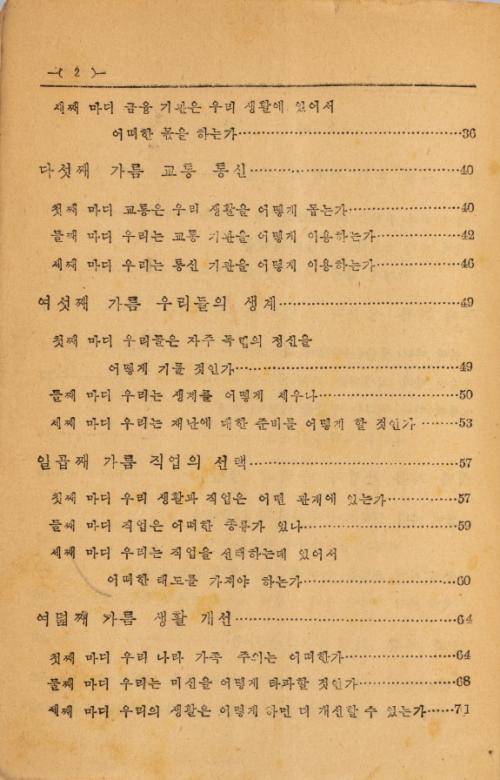 ( 2 )
새째 마디 금융 기관은 우리 생활에 있어서
어떠한 몫을 하는가 36
다섯째 가름 교통 통신 40
첫째 마디 교통은 우리 생활을 어떻게 돕는가 40
둘째 마디 우리는 교통 기관을 어떻게 이용하는가 42
세째 마디 우리는 통신 기관을 어떻게 이용하는가 46
여섯째 가름 우리들의 생계 49
첫째 마디 우리들은 자주 독립의 정신을
어떻게 기를 것인가 49
둘째 마디 우리는 생계를 어떻게 세우나 50
세째 마디 우리는 재난에 대한 준비를 어떻게 할 것인가 53
일곱째 가름 직업의 선택 57
첫째 마디 우리 생활과 직업은 어떤 관계에 있는가 57
둘째 마디 직업은 어떠한 종류가 있나 59
세째 마디 우리는 직업을 선택하는데 있어서
어떠한 태도를 가져야 하는가 60
여덟째 가름 생활 개선 64
첫째 마디 우리 나라 가족 주의는 어떠한가 64
둘째 마디 우리는 미신을 어떻게 타파할 것인가 68
세째 마디 우리의 생활은 어떻게 하면 더 개선할 수 있는가 71